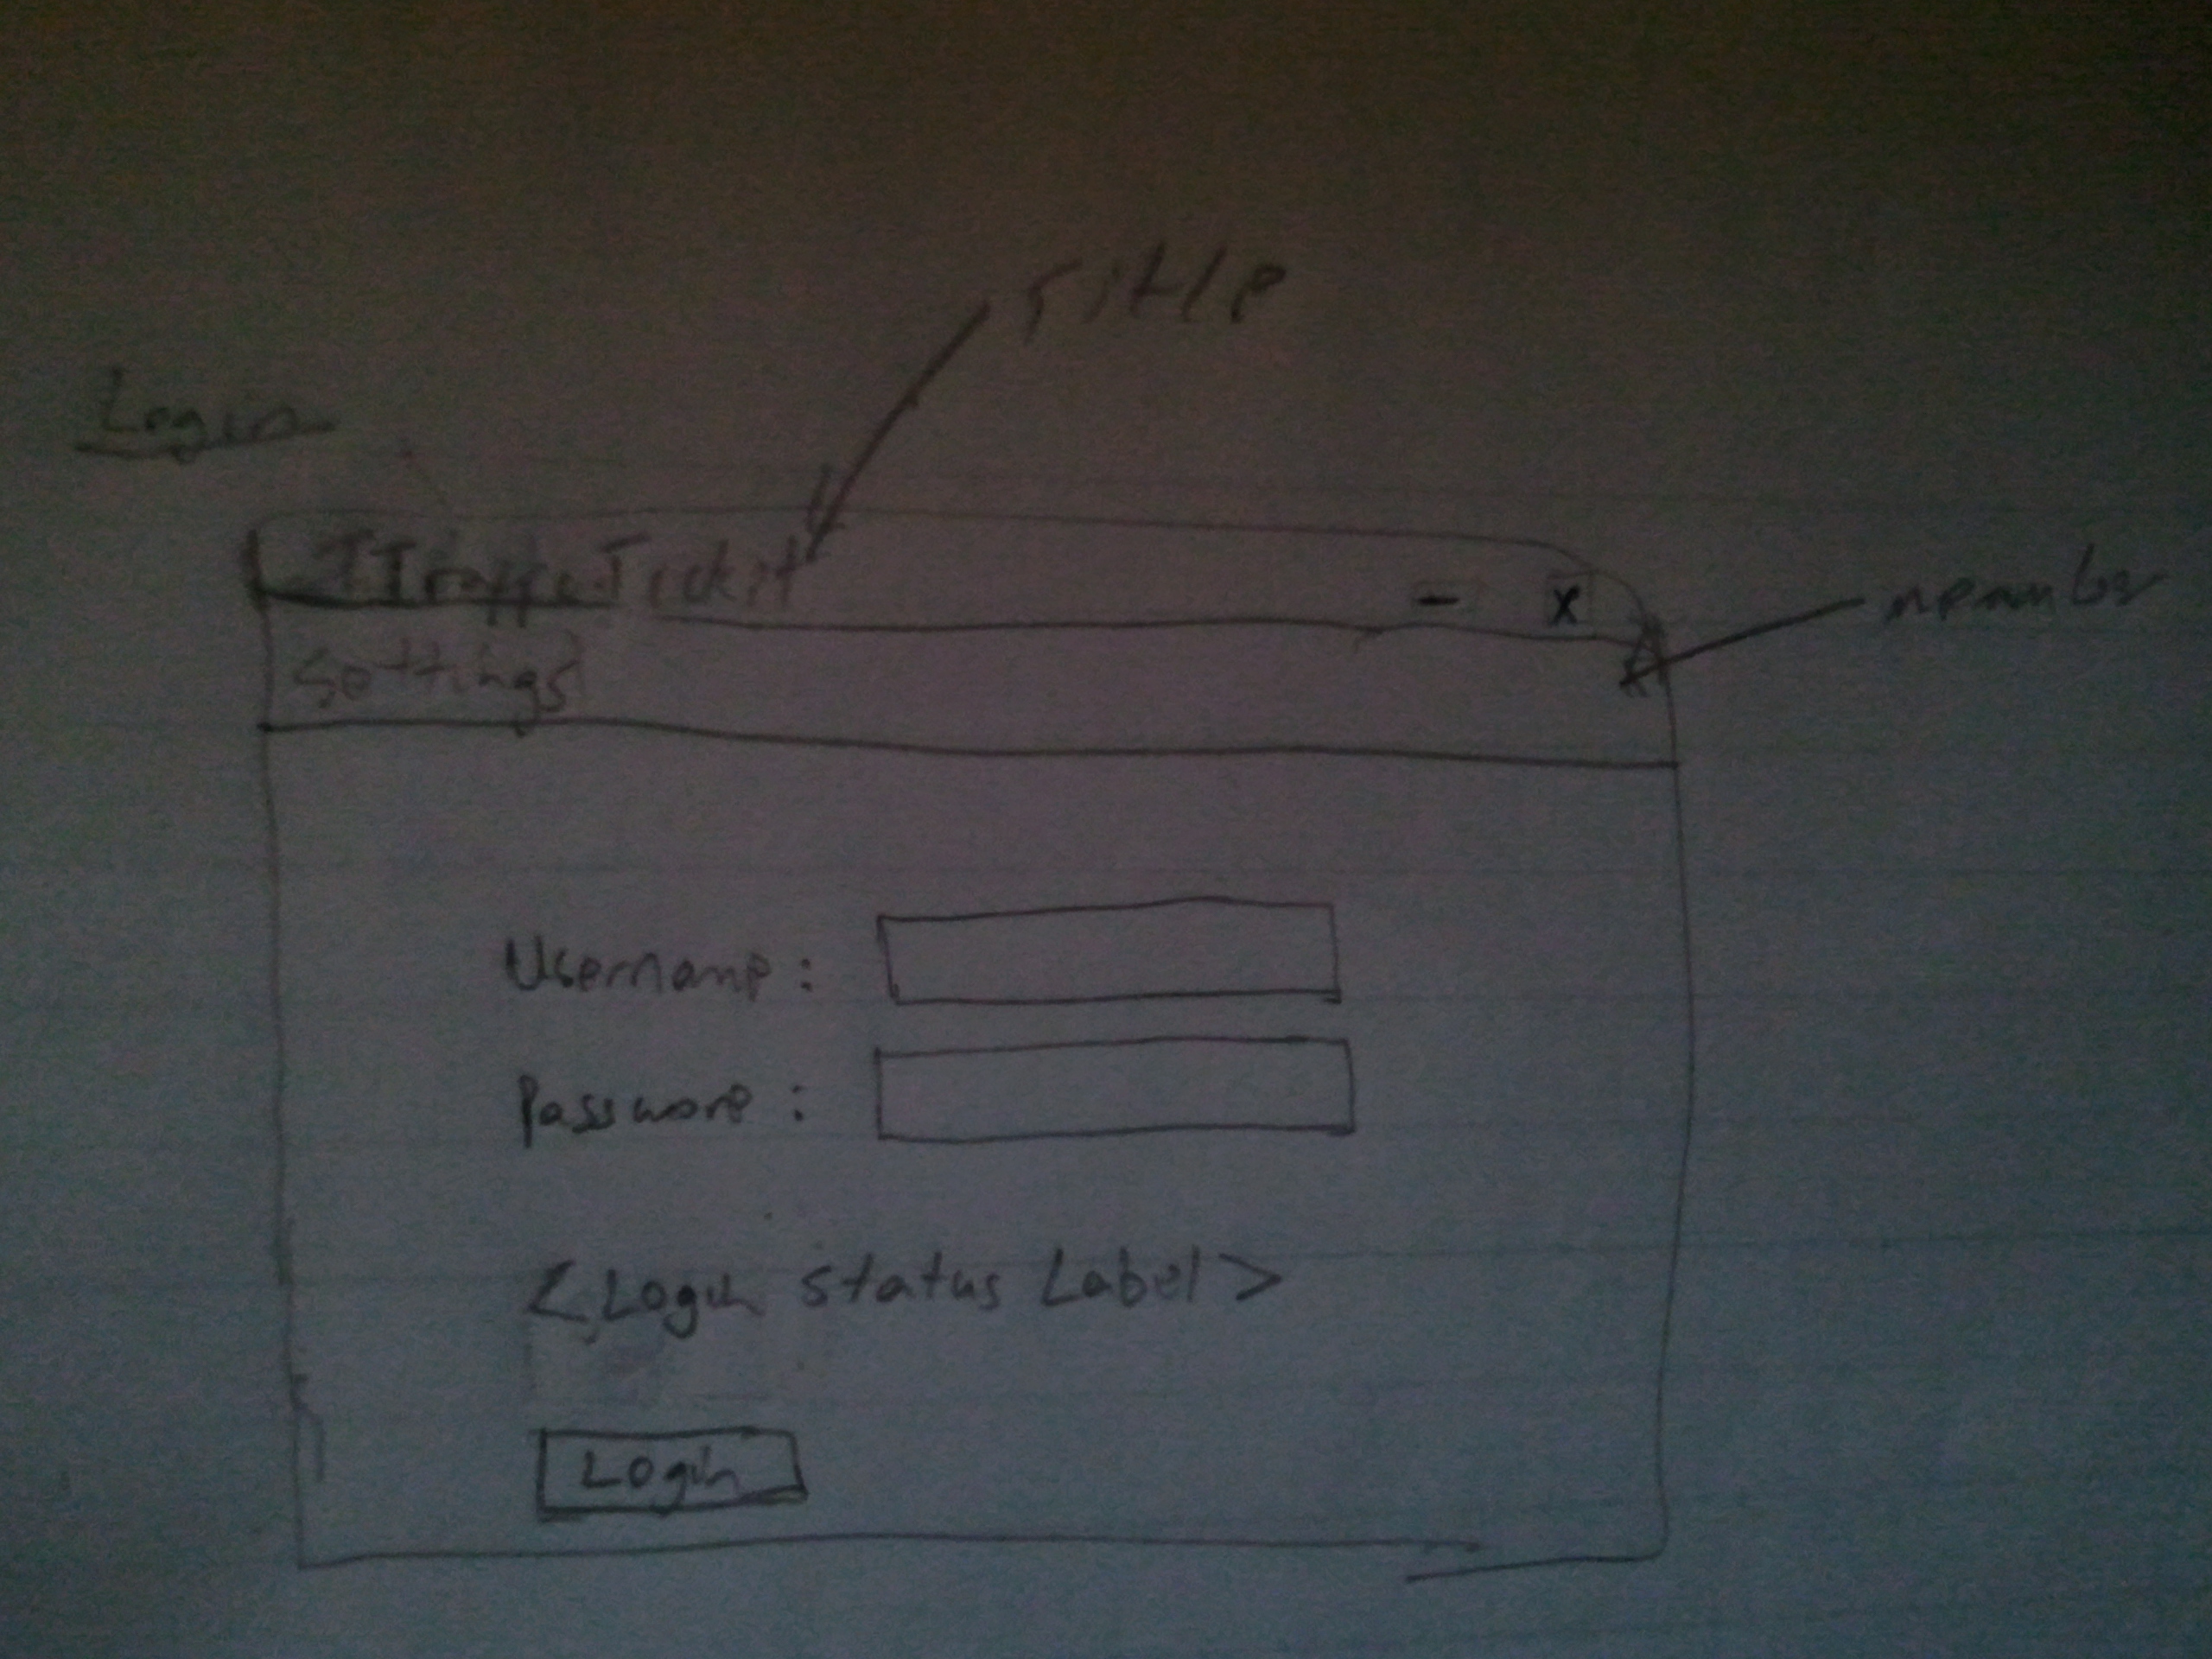 Title
Login
TTraffic Tickit
- x
menubar
Settings
Username :
Password :
< Login status Label >
Login